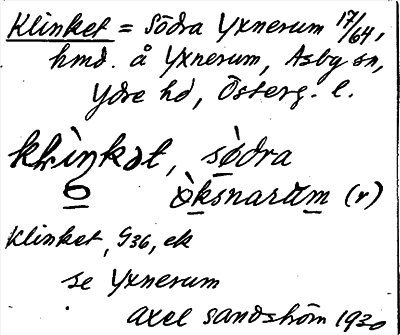 Klinket = Södra Yxnerum 17/64,
hmd. å Yxnerum, Asby sn,
Ydre hd, Österg. l.
klìŋkət, sòdra
òksnarům (r)
Klinket, G36, ek
se Yxnerum
Axel Sandström 1930